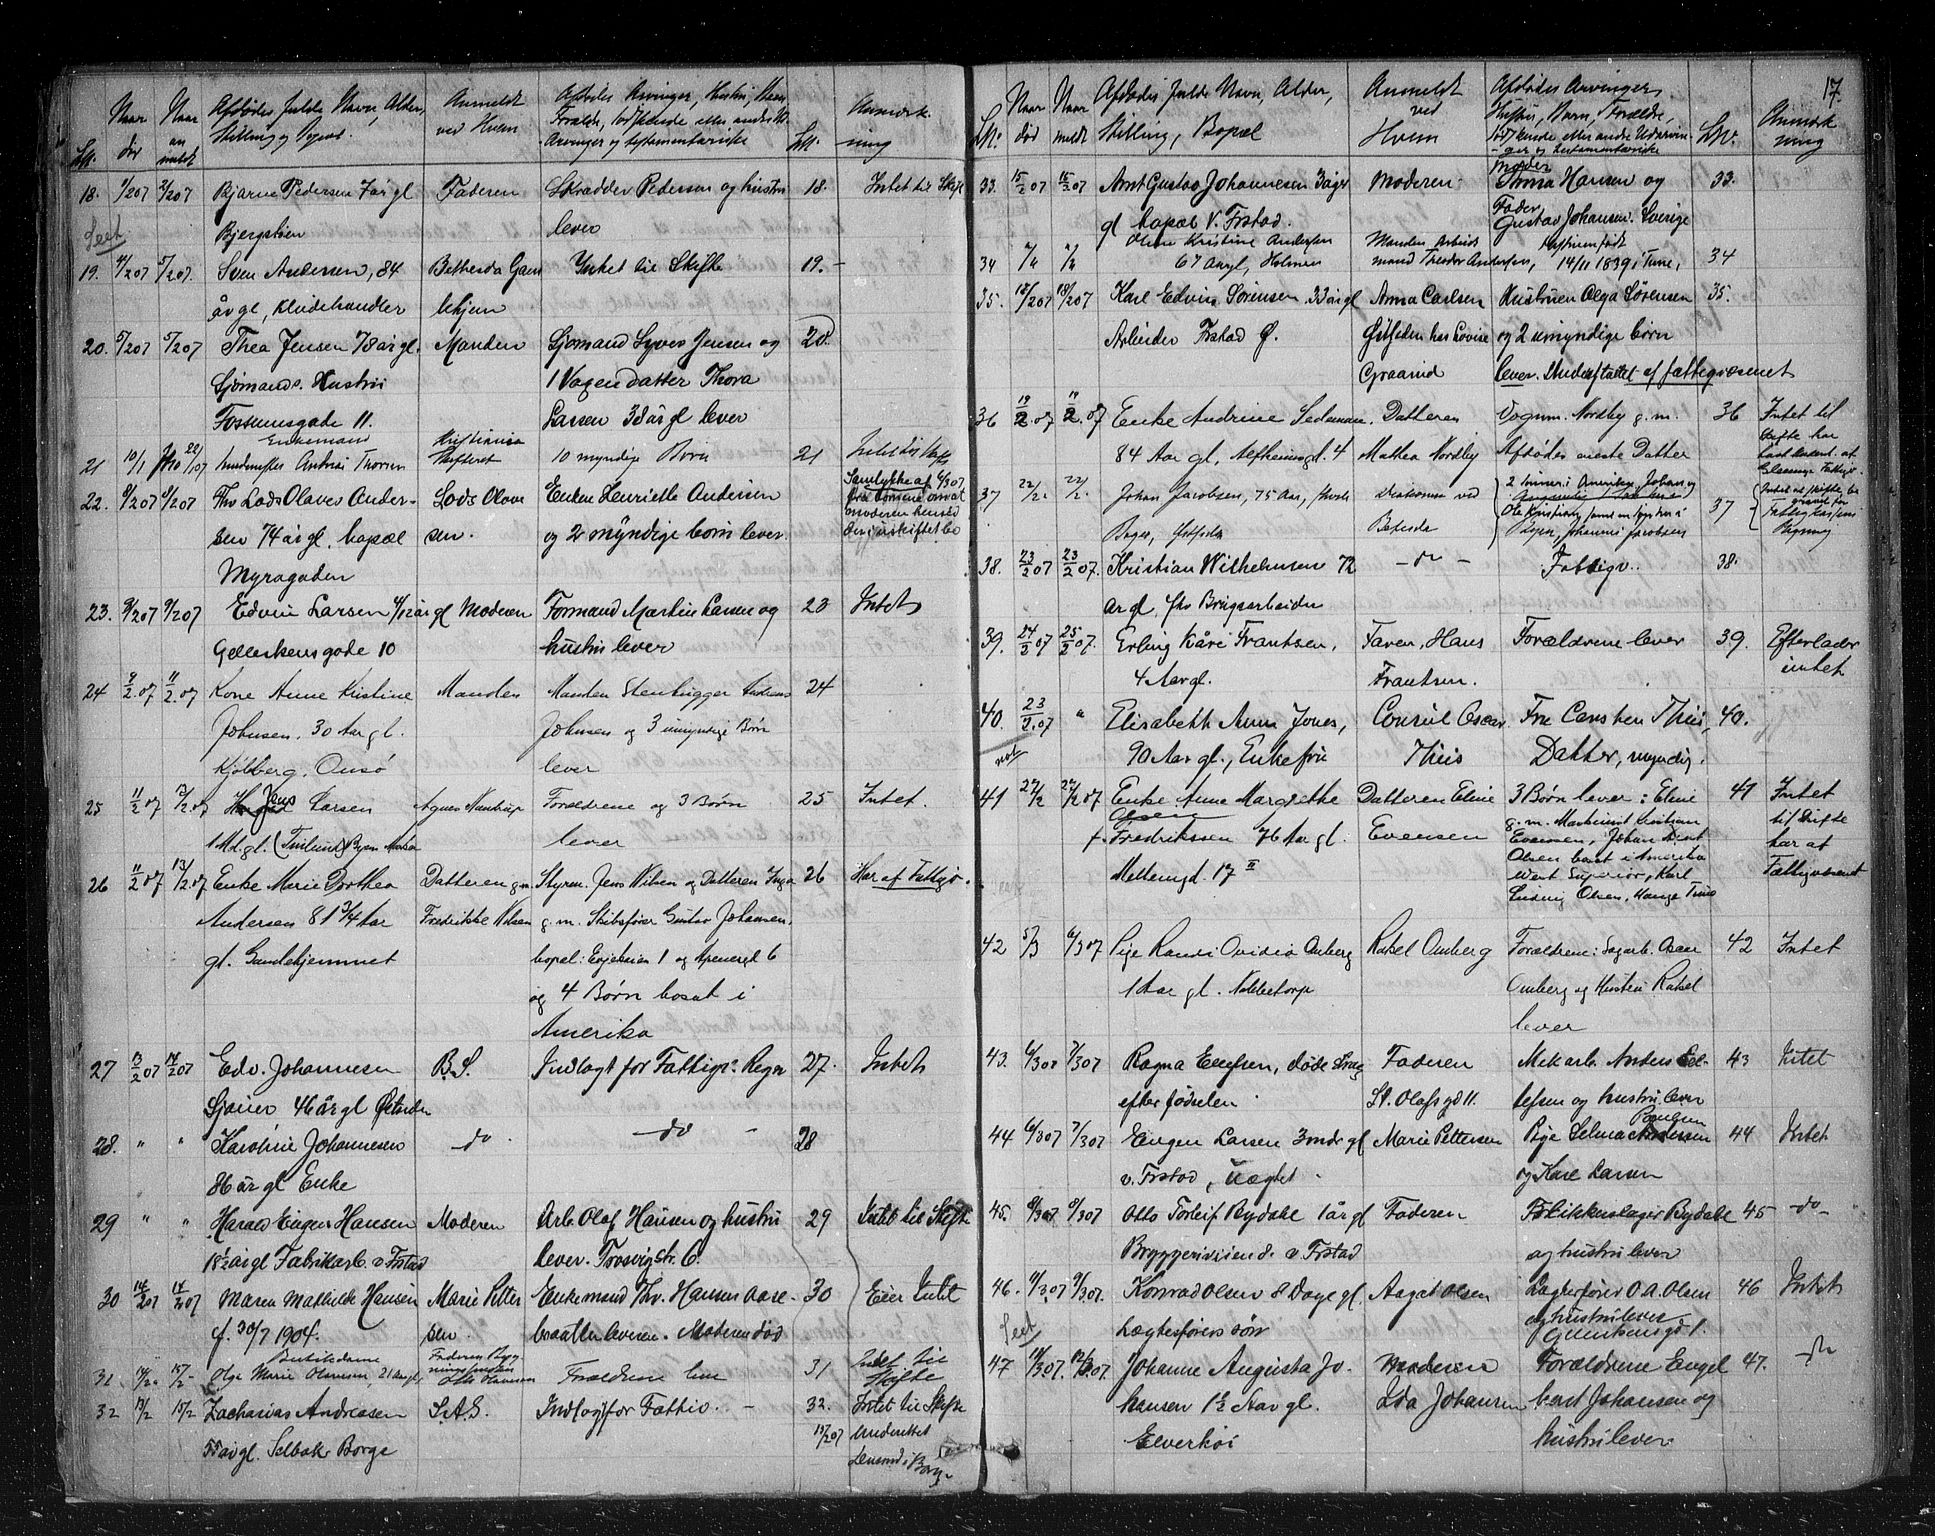 17.
LNo.
Naar død
Naar anmeldt
Afdødes fulde Navn, Alder, Stilling og Bopæl.
Anmeldt ved Hvem
Afdødes Arvinger, Hustru, Børn Forældre, Sødskende eller andre Arvinger og testamentariske
LNo.
Anmærkning
18. 1/2 07 2/2 07 Bjarne Pedersen 7 år gl Faderen Skrædder Pedersen og hustru 18. Intet til Skifte
Bjergstien lever
Seet
19. 4/2 07 5/2 07. Sven Andersen, 84 Bethesda Gam Intet til Skifte 19. –
år gl, Kludehandler lehjem
20. 5/2 07 5/2 07 Thea Jensen 78 år gl. Manden Sjømand Syver Jensen og 20.
Sjømands Hustru 1 Vogen datter Thora
Fossumsgade 11. Larsen 38 år gl lever
Enkemand Kristiania
21 10/1 Andrias Thorsen Skifteret 10 myndige Børn 21 Intet til Skifte
22. 6/2 07 6/2 07 Fhv Lods Olaves Ander- Lods Olave Enken Henriette Andersen Samtykke af 6/3 07.
sen 74 år gl. bopæl sen. og 2 myndige børn lever. moderen hensid
Myragaden der i uskiftet bo
23. 9/2 07 9/2 07 Edvin Larsen 4/12 år gl Moderen Formand Martin Larsen og 23 Intet
Gellertsensgade 10 hustru lever
24 9/2.07 11/2.07 Kone Anne Kristine Manden Manden Stenhugger Andreas 24
Johnsen. 30 Aar gl. Johnsen og 3 umyndige Børn
Kjølberg. Onsø lever
25 11/2 07 12/2.07 Jens Larsen Agnes Forældrene og 3 Børn 25 Intet.
1 Md. gl. lever
26 11/2 07 13/2.07 Enke Marie Dorthea Datteren g.m. Styrm. Jens Nilsen og Datteren Inga 26 Har af Fattigv.
Andersen 81 3/4 Aar Fredrikke Nilsen g.m. Skibsfører Gustav Johansen.
gl. Gamlehjemmet bopæl: Evjebakken 1 og Apenesgd 6
og 4 Børn bosat i
Amerika
27 13/2 07 14/2 07 Edv. Johannesen B.S. Indlagt for Fattigv. Regn 27. Intet
Sjøner 46 år gl Østsiden
28. " " Karoline Johannesen – do – – do – 28
86 år gl Enke
29 " " Harald Eugen Hansen Moderen Arb. Olaf Hansen og hustru 29 Intet til Skifte
18 1/2 år gl Fabrikarb. v Frstad lever. Trosvigstr. 6.
30 14/2 07 14/2 07 Maren Mathilde Hansen Marie Petter Enkemand Thv. Hansen Aase- 30 Eier Intet
f. 30/7 1904. sen. braaten leveren. Moderen død
Butikdame Faderen Byg
31 14/2. 15/2 – Olga Marie Olavesen, 21 Aar gl, Otto Olavesen Forældrene leve 31 Intet til Skifte
32 13/2 15/2 Zacharias Andreasen S.A.S. Indlagt for Fattiv. – 32. Intet til Skifte
55 år gl. Selbak Borge 15/2 07 Underrettet
Lensmd i Borge
LNo.
Naar død
Naar meldt
Afdødes fulde Navn, Alder, Stilling, Bopæl
Anmeldt ved Hvem
Afdødes Arvinger, Hustru, Børn, Forældre, Sødskende eller andre Udarvinger og testamentariske
LNo.
Anmærkning
Moder
33. 15/2 07 15/2 07 Arnt Gustav Johannesen 3 åger Moderen Anna Hansen og 33.
Fader
gl bopæl V. Frstad. Gustav Johansen. Sverige
Olava Kristine Andersen Manden Arbeids Hustruen født
34 "/" "/" 67 Aar gl, Holmen mand Theodor Andersen, 14/11 1839 i Tune, 34
35. 18/2 07 18/2 07 Karl Edvin Sørensen 33 år gl Anna Carlsen Hustruen Olga Sørensen 35.
Arbeider Frstad Ø. Østsiden hos Lovise og 2 umyndige børn
Graarud lever. Understøttet af fattigvæsenet
36 19/2.07 19/2.07 Enke Andrine Datteren Vognm. Nordby g.m. 36 Intet til
84 Aar gl, 4 Mathea Nordby Afdødes eneste Datter Skifte har
37 22/2. 22/2. Johan Jacobsen, 75 Aar, Diakonen ved 2 sønner i Amerika, Johan og 37
Bager, Østsiden Betesda Johannes Jacobsen
38. 23/2 07 23/2 07. Kristian Wilhelmsen 72 – do – Fattigv. 38.
ar gl. fhv Brugsarbeider
39. 24/2 07 25/2 07. Erling Kåre Frantsen, Faren, Hans Forældrene lever 39. Efterlader
4 Aar gl. Frantsen. intet
40. 23/2.07 " Elisabeth Anna Jones, Consul Oscar Fru Carsten Thiis, 40.
90 Aar gl., Enkefru Thiis Datter, myndig.
41 27/2 27/2 07 Enke Anne Margrethe Datteren Eline 3 Børn lever: Eline 41 Intet
Olsen g.m. Maskinist Kristian til Skifte
f. Fredrikssen 76 Aar gl. Evensen Evensen, Johan har af
Mellemgd. 17 II Olsen bosat i Amerika Fattigvæsenet
West Superior, Karl
Ludvig Olsen, Tune
42 5/3 6/3 07 Pige Randi Ovidia Omberg Rakel Omberg Forældrene: Sagarb. Oscar 42 Intet
1 Aar gl. Nabbetorp Omberg og Hustru Rakel
lever
43. 6/3 07 7/3 07 Ragna Ellefsen, døde strax Faderen Mek arb. Anders El- 43 Intet
efter fødselen St. Olafsgd 11. lefsen og hustru lever
44 6/3 07 7/3 07 Eugen Larsen 3 mdr gl Marie Pettersen Pige Selma 44 Intet
v. Frstad, Uægte og Kare Larsen
45. 8/3 07 8/3 07 Otto Torleif Bydale 1 år gl Faderen Blikkenslager Bydale 45 – do –
v Frstad og hustru lever
46. 9/3 07 9/3 07. Konrad Olsen 8 Dage gl. Aagot Olsen Lægterfører O.A. Olsen 46 Intet
Seet Lægterførers søn og hustru lever
47 11/3 07. 12/3 07. Johanne Augusta Jo- Moderen Forældrene Engel 47. – do –
hansen 1 1/2 Aar gl. Ida Johansen bert Johansen og
Elverhøi hustru lever